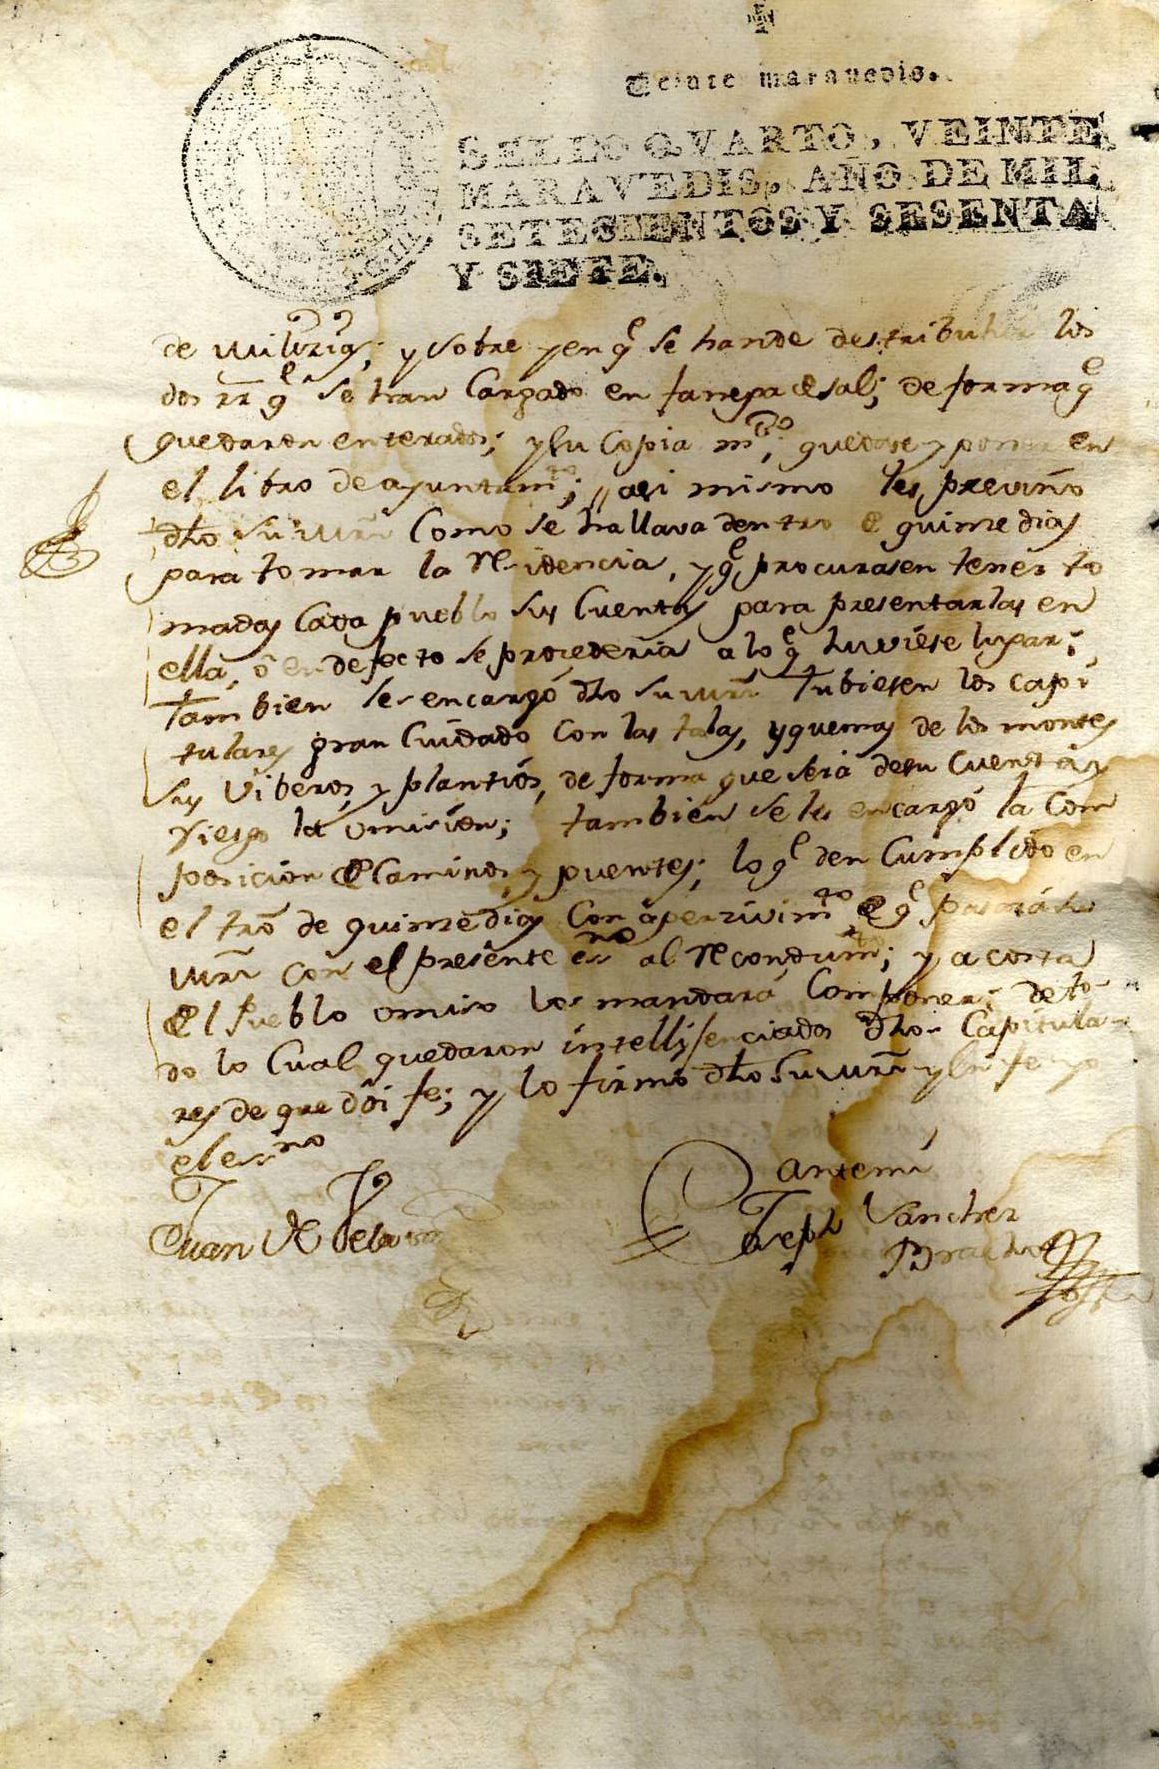 Veinte maravedis.
SELLO QVARTO, VEINTE
MARAVEDIS, AÑO DE MIL
SETECIENTOS Y SESENTA
Y SIETE.
de y sobre y en q^e se han de destribuhir los
dos rr^s q^e se han Cargado en fanega de sal; de forma q^e
quedaron enterados; y su Copia quedase y poner en
el libro de ayuntam^to; asi mismo les previno
dho su mrd Como se hallava dentro de quinze dias
para tomar la Residencia, y q^e procurasen tener to
madas Cada pueblo sus Cuentas para presentarlas en
ella, ô en defecto se procederia a lo q^e huviese lugar;
tambien les encargó dho su mrd tubiesen los capi
tulares gran Cuidado con las talas, y quemas de los montes
sus Viberos, y plantios, de forma que seria de su Cuenta y
riesgo la omision; tambien se les encargó la Com
posicion de Caminos, y puentes; lo q^e den Cumplido en
el tro de quinze dias Con aperzivim^to de q^e pasará su
mrd con el presente ess^no al Recondcim^to; y a costa
del Pueblo omiso los mandará Componer; de to
do lo Cual quedaron intelligenciados dhos Capitula-
res de que dôi fe; y lo firmó dho Su mrd y en fe yo
el ess^no
Juan de
Antemi
Joseph Sanchez